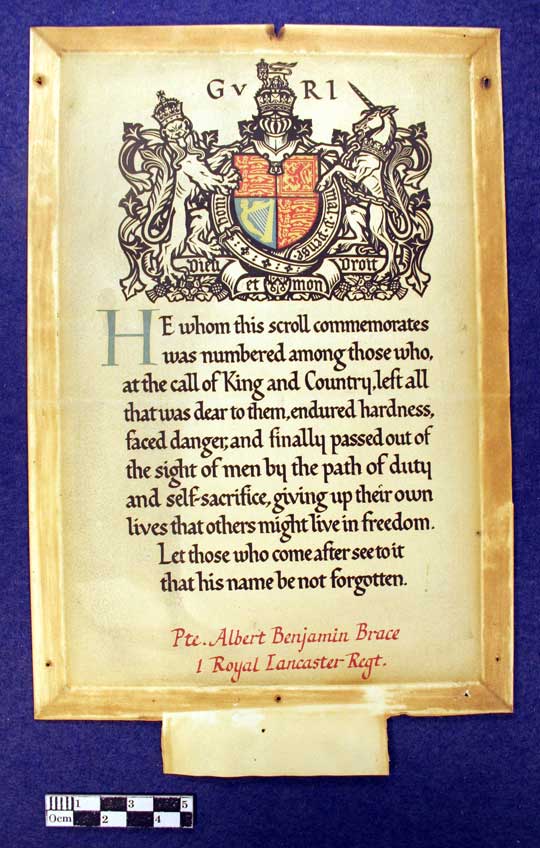 GV RI
Honi soit qui mal y pense
Dieu Droit
et mon
HE whom this scroll commemorates
was numbered among those who,
at the call of King and Country, left all
that was dear to them, endured hardness,
faced danger, and finally passed out of
the sight of men by the path of duty
and self-sacrifice, giving up their own
lives that others might live in freedom.
Let those who come after see to it
that his name be not forgotten.
Pte. Albert Benjamin Brace
1 Royal Lancaster Regt.
1 3 5
0cm 2 4